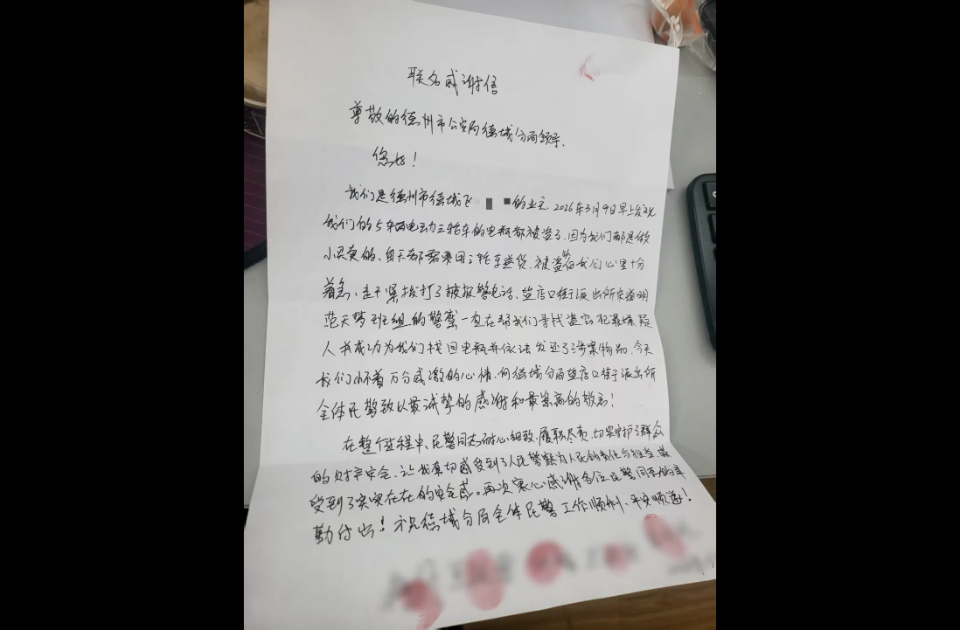 联名感谢信
尊敬的德州市公安局德城分局领导、
您好！
我们是德州市德城 的业主 2026年3月9日早上发现
我们的5车两电动三轮车的电瓶都被盗了，因为我们都是做
小买卖的，每天都需要用三轮车送货，被盗后我们心里十分
着急，于是拨打了报警电话，
警组的警察一直在帮我们寻找盗窃犯罪嫌疑
人并成功为我们找回电瓶并依法发还了涉案物品，今天
我们怀着万分感激的心情，向德城分局 店口街于派出所
全体民警致以最诚挚的感谢和最崇高的敬意！
在整个过程中，民警同志耐心细致，履职尽责，切实守护了群众
的财产安全，让我真切感受到了人民警察为人民的责任与担当，感
受到了实实在在的安全感。再次衷心感谢各位民警同志的辛
勤付出！祝德城分局全体民警工作顺利、平安顺遂！